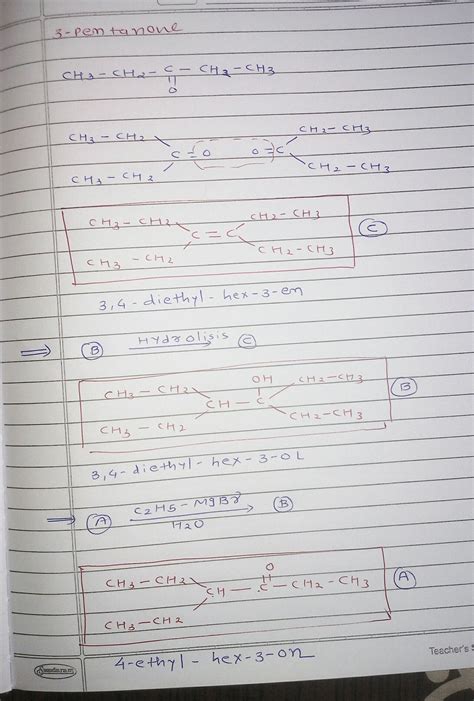 3-pentanone
CH3 - CH2 - C - CH2 - CH3
O
CH3 - CH2 CH2 - CH3
C = O O = C
CH3 - CH2 CH2 - CH3
CH3 - CH2 CH2 - CH3
C = C C
CH3 - CH2 CH2 - CH3
3,4 - diethyl - hex - 3 - en
⇒ B Hydrolisis C
CH3 - CH2 OH CH2 - CH3
CH - C B
CH3 - CH2 CH2 - CH3
3,4 - diethyl - hex - 3 - OL
⇒ A C2H5 - MgBr B
H2O
O
CH3 - CH2 CH - C - CH2 - CH3 A
CH3 - CH2
4-ethyl - hex - 3 - on
Sundaram
Teacher's S